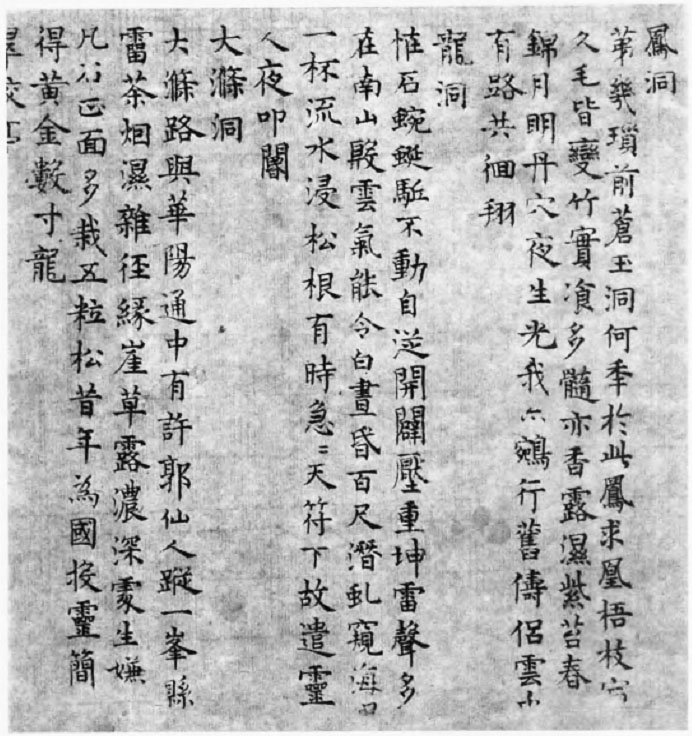 鳳洞
第幾瑣前蒼玉洞何季於此鳳求凰梧枝
久毛皆變竹實飡多髓亦香露濕紫苔春
錦月明丹穴夜生光我亦鵷行舊儔侶雲山
有路共徊翔
龍洞
恠石蜿蜒駈不動自迄開闢壓重坤雷聲多
在南山殷雲氣能令白晝昏百尺潛虬窺海口
一杯流水浸松根有時急〻天符下故遣靈
人夜叩閽
大滌洞
大滌路與華陽通中有許郭仙人蹤一峯縣
霤茶烟濕雜徑緣崖草露濃深處生嫌
凡 正面多栽五粒松昔年為國投靈簡
得黃金數寸龍